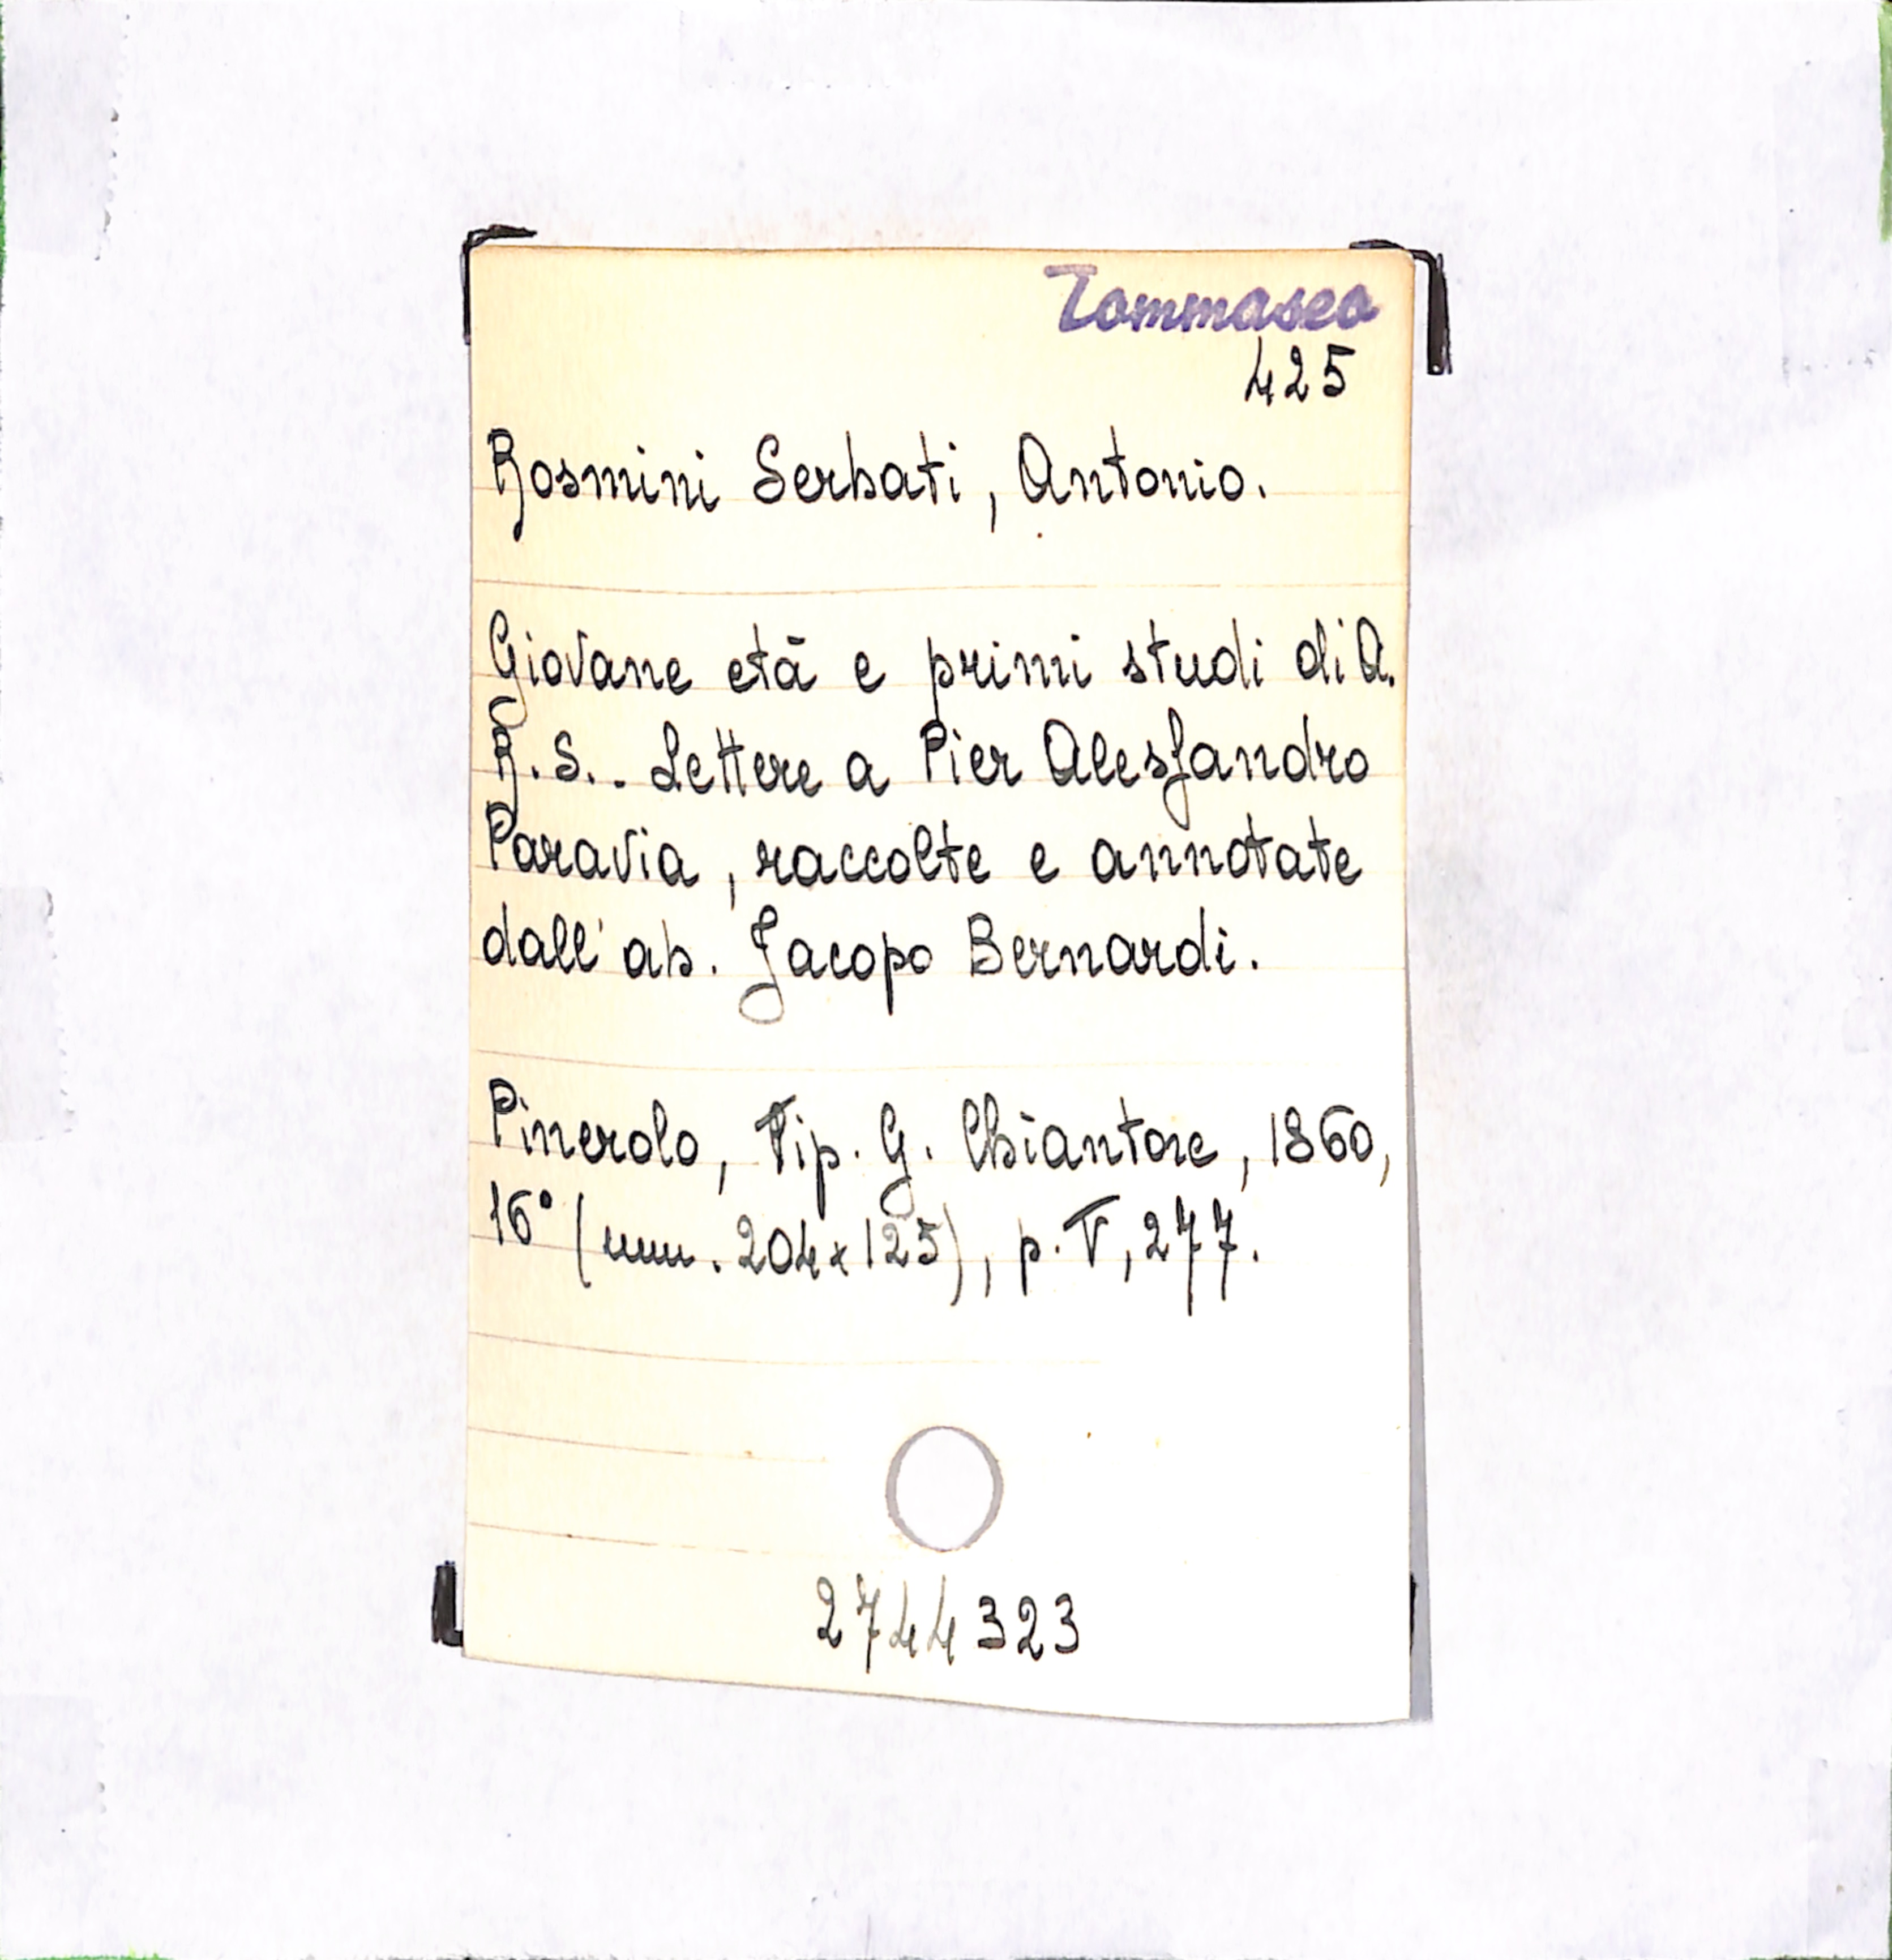 Tommaseo
425
Rosmini Serbati, Antonio.
Giovane età e primi studi di A.
R. S.. Lettere a Pier Alessandro
Paravia, raccolte e annotate
dall' ab. Jacopo Bernardi.
Pinerolo, Tip. G. Chiantore, 1860,
16° (mm. 204x125), p. V, 277.
2744323